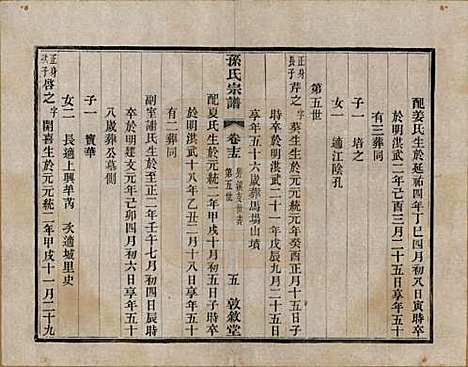 配姜氏生於延祐四年丁巳四月初八日寅時卒
於明洪武二年己酉三月二十五日享年五十
有三葬同
子一 培之
女一 適江陰孔
第五世
正身長子 芹之 字 葵生生於元元年癸酉正月十五日子
時卒於明洪武二十一年戊辰九月二十五日
享年五十六歲葬馬場山墳
孫氏宗譜 卷十三 第五世 五 敦敘堂
配夏氏生於元元統二年甲戌十月初五日子時
卒於明洪武十八年乙丑二月十八日享年五十
有二葬同
副室謝氏生於至正二年壬午七月初四日辰時
卒於明建文元年己卯四月初六日享年五十
八歲葬公墓側
子一 寶華
女二 長適上興羊芮 次適城里史
正身次子 啓之 字 開喜生於元元統二年甲戌十一月二十九